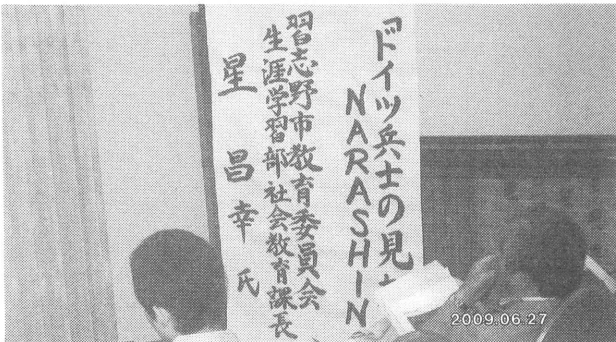 『ドイツ兵士の見
NARASHIN
習志野市教育委員会
生涯学習部社会教育課長
星昌幸氏
2009.06.27